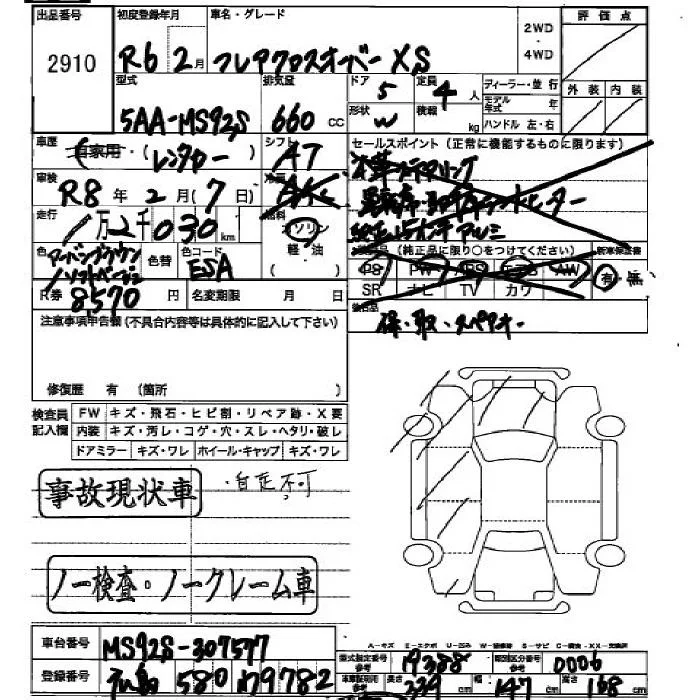 出品番号 初度登録年月 車名・グレード 2WD・4WD 評価点
2910 R6 2月 フレアクロスオーバー XS
型式 排気量 ドア 定員 ディーラー・並行 外装 内装
5AA-MS92S 660 CC 5 4人 モデル年式 年
形状 W 積載 kg ハンドル 左・右
車歴 自家用・(レンタカー シフト AT セールスポイント(正常に機能するものに限ります)
車検 R8年2月(7日) 冷房 AAC
走行 1万2千030km 燃料 ガソリン 軽・油(
純正15インチアルミ
色 アーバンブラウン/ソフトベージュ 色替 色コード ESA
装備品(純正品に限り○をつけてください) 新車保証書
PS PW ABS エアB AW 有・無
SR ナビ TV カワ
R券 8,570円 名変期限 月 日
後日品 保・取・スペアキー
注意事項申告欄(不具合内容等は具体的に記入して下さい)
修復歴 有(箇所 )
検査員記入欄 FW キズ・飛石・ヒビ割・リペア跡・X要
内装 キズ・汚レ・コゲ・穴・スレ・ヘタリ・破レ
ドアミラー キズ・ワレ ホイール・キャップ キズ・ワレ
事故現状車 ・自走不可
ノー検査・ノークレーム車
車台番号 MS92S-307577
登録番号 580 79782
型式指定番号 参考 19388 類別区分番号 参考 0006
長さ 339cm 幅 147cm 高さ 168cm